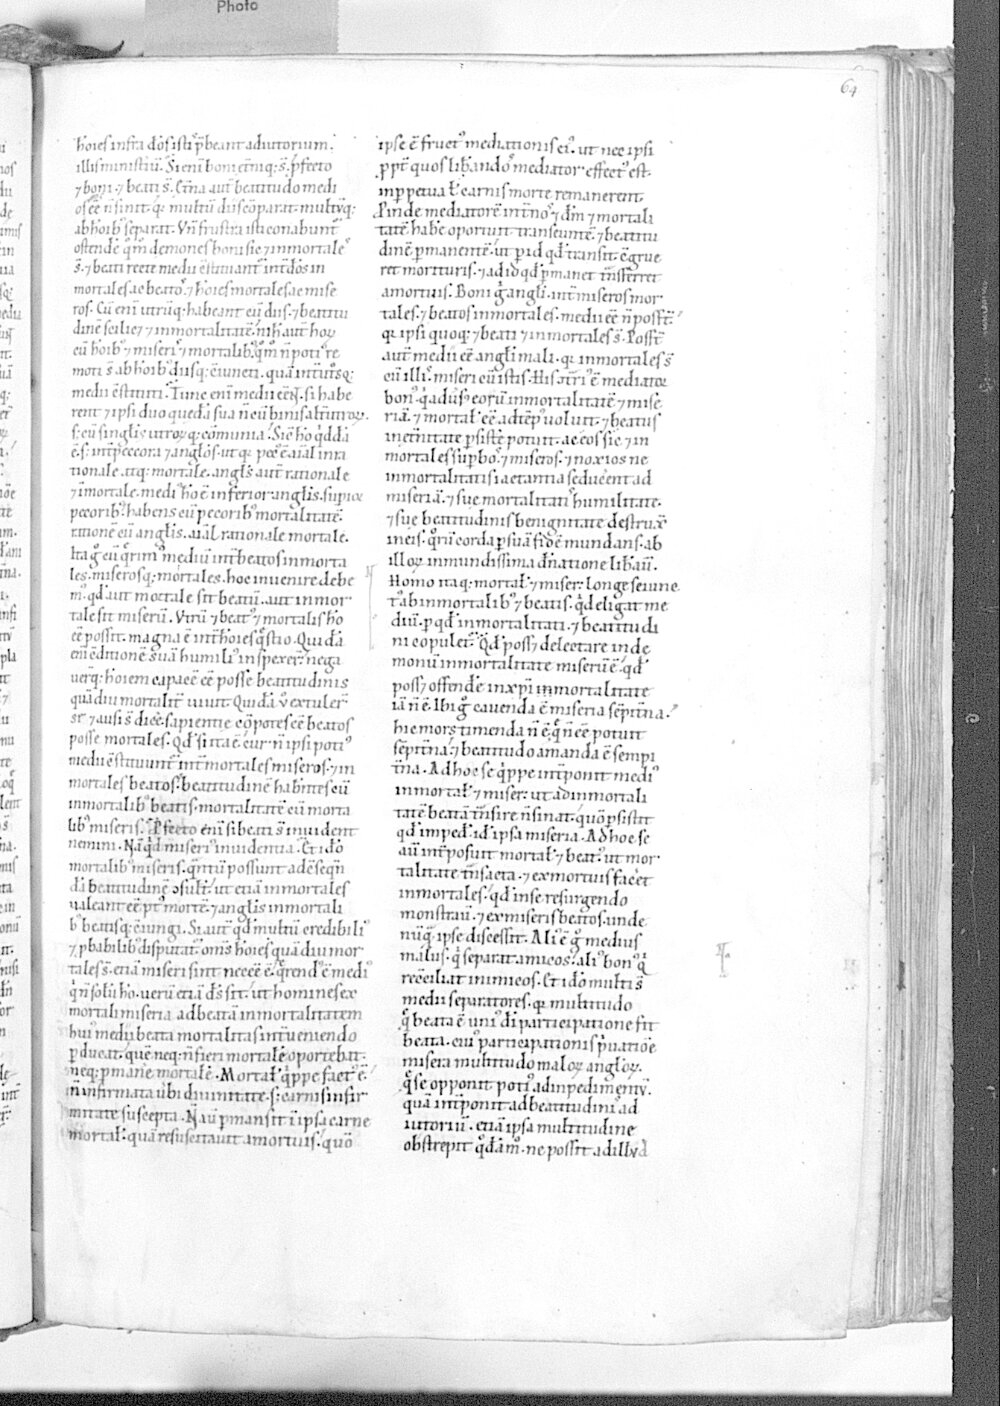 Photo
64
hoıes infra dōs istı p̄beant adiutorium.
illis ministiū. Si enī boni etniq; s̄. p̄fecto
⁊ boni. ⁊ beati s̄. Etna aut̄ beatitudo medi
os eē n̄ sinit. qꝫ multū diis cōparat. multūq;
ab hoib; separat. Vn̄ frustra isti conabunt᷒
ostendē qm̄ demones boni sic ⁊ inmortales
s̄. ⁊ beati recte medii c̄stituant᷒ int̄ dōs in
mortales ac beatos. ⁊ hoıes mortales ac mise
ros. Cū enī utrūq; habeant cū diis. ⁊ beatitu
dinē scilic̄ ⁊ inmortalitatē. nıħ aut̄ hoꝝ
cū hoib; ⁊ miseris ⁊ mortalib;. qm̄ n̄ poti᷒ re
moti s̄ ab hoib; diisq; c̄iuncti. quā int̄ utrosq;
medii c̄stituti. Tunc enī medii eēnt. si habe
rent ⁊ ipsi duo quedā sua n̄ cū binis alt̄utroꝝ.
s; cū singlis utroꝝq; cōmunia. Sic ho q̇ddā
ē. s; int̄ pecora ⁊ anglos. ut qꝫ pec᷒ ē aīal inra
tionale atq; mortale. angls aut̄ rationale
⁊ īmortale. medi᷒ ho ē inferior anglis. superior
pecorib;. habens cū pecorib; mortalitatē.
rationē cū anglis. aīal rationale mortale.
Ita g̊ cū q̄rim᷒ mediū int̄ beatos inmorta
les. miserosq; mortales. hoc inuenire debe
m᷒. qd̄ aut mortale sit beatū. aut inmor
tale sit miserū. Vtrū ⁊ beat᷒ ⁊ mortalis ho
eē possit. magna ē int̄ hoıes q̄stio. Quidā
enī c̄ditionē suā humili᷒ inspexer̄. nega
uerq; hoiem capacē eē posse beatitudinis
quādiu mortalit̄ uiuit. Quidā u̇ extuler̄
se. ⁊ ausi s̄ dicē. sapientie cōpotes eē beatos
posse mortales. Qd̄ si ita ē. cur n̄ ipsi poti᷒
medii c̄stituunt᷒ int̄ mortales miseros. ⁊ in
mortales beatos. beatitudinē habentes cū
inmortalib; beatis. mortalitatē cū morta
lib; miseris. P̄fecto enī si beati s̄ inuident
nemini. Nā q̇d miseri᷒ inuidentia. Et idō
mortalib; miseris. q̄ntū possunt ad cōseq̄n
dā beatitudinē ɔsult̄. ut etiā inmortales
ualeant eē pt᷒ mortē. ⁊ anglis inmortali
b; beatisq; c̄iungi. Si aut̄ qd̄ multū credibili᷒
⁊ p̄babilius disputat᷒. om̄s hoıes quādiu mor
tales s̄. etiā miseri sint necēē ē. q̄rend᷒ ē medi᷒
q̇ n̄ solū ho. uerū etiā d̄s sit. ut homines ex
mortali miseria ad beatā inmortalitatem
hui᷒ medii beata mortalitas int̄ueniendo
p̄ducat. quē neq; n̄ fieri mortalē oportebat.
neq; p̄manē mortalē. Mortal̄ q̇ppe fact᷒ ē.
n̄ infirmata uerbi diuinitate. s; carnis infir
mitate suscepta. N̄ aū p̄mansit ī ipsa carne
mortal̄. quā resuscitauit a mortuis. quō
ipse ē fruct᷒ mediationis ei᷒. ut nec ipsi
p̄pt̄ quos lib̄andos mediator effect᷒ est.
in p̄petua ul̄ carnis morte remanerent.
Proinde mediatorē int̄ nos ⁊ dm̄ ⁊ mortali
tatē habē oportuit transeuntē. ⁊ beatitu
dinē p̄manentē. ut p̄ id qd̄ transit. c̄grue
ret morituris. ⁊ ad id qd̄ p̄manet tn̄sferret
a mortuis. Boni g̊ angli. int̄ miseros mor
tales. ⁊ beatos inmortales. medii eē n̄ posst̄.
qꝫ ipsi quoq; ⁊ beati ⁊ inmortales s̄. Posst̄
aut̄ medii eē angli mali. qꝫ inmortales s̄
cū illis. miseri cū istis. His ɔtri᷒ ē mediator
bon᷒. q̇ adūs᷒ eorū inmortalitatē ⁊ mise
riā. ⁊ mortal̄ eē ad tēp᷒ uoluit. ⁊ beatus
in et̄nitate p̄sistē potuit. ac eos sic ⁊ in
mortales sup̄bos. ⁊ miseros. ⁊ noxios ne
inmortalitatis iactantia seducent ad
miseriā. ⁊ sue mortalitatis humilitate.
⁊ sue beatitudinis benignitate destrux̄
in eis. q̊rū corda p̄ suā fidē mundans. ab
illoꝝ inmundissima dn̄atione lib̄auit.
Homo itaq; mortal̄ ⁊ miser. longe seiunc
t᷒ ab inmortalib; ⁊ beatis. q̇d eligat me
diū. p̄ qd̄ inmortalitati. ⁊ beatitudi
ni copulet᷒. Qd̄ poss; delectare in de
monū inmortalitate miserū ē. qd̄
poss; offendē in xp̄i inmortalitate
iā n̄ ē. Ibi g̊ cauenda ē miseria sēpit̄na.
hic mors timenda n̄ ē. q̄ n̄ eē potuit
sēpit̄na. ⁊ beatitudo amanda ē sempi
t̄na. Ad hoc se q̇ppe int̄ponit medi᷒
inmortal̄ ⁊ miser. ut ad inmortali
tatē beatā tn̄sire n̄ sinat. quō p̄sistit
qd̄ imped̄. id̄ ipsa miseria. Ad hoc se
aū int̄posuit mortal̄ ⁊ beat᷒. ut mor
talitate tn̄sacta. ⁊ ex mortuis facēt
inmortales. qd̄ in se resurgendo
monstrauit. ⁊ ex miseris beatos. unde
nūq̄ ipse discessit. Ali᷒ ē g̊ medius
malus. q̇ separat amicos. ali᷒ bon᷒ q̇
recc̄iliat inimicos. Et idō multi s̄
medii separatores. qꝫ multitudo
q̄ beata ē. uni᷒ dī participatione fit
beata. cui᷒ participationis p̄uatiōe
misera multitudo maloꝝ angloꝝ.
q̄ se opponit poti᷒ ad impedimentū.
quā int̄ponit ad beatitudinis ad
iutoriū. etiā ipsa multitudine
obstrepit q̊dām᷒. ne possit ad illud